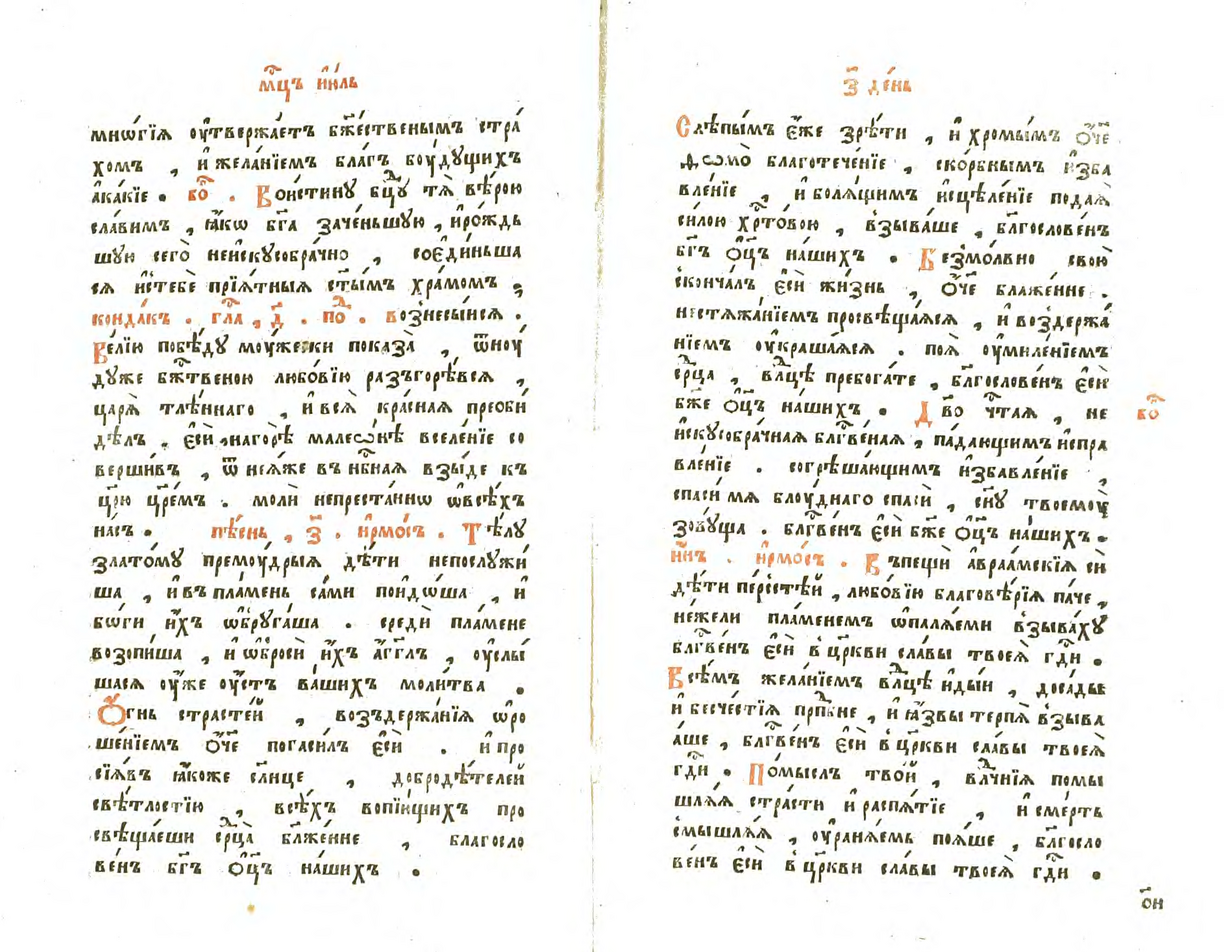 мц҃ъ і҆ю́ль
мнѡ́гїѧ ᲂу҆твержа́етъ бж҃е́ственымъ стра́
хомъ , и҆ жела́нїемъ бла́гъ боу́дꙋщихъ
а҆ка́кїе . бо҃ . Вои́стинꙋ бцⷣꙋ тѧ̀ вѣ́рою
сла́вимъ , ꙗ҆́кѡ бг҃а заче́ньшꙋю , и҆ро́ждь
шꙋю сего̀ неи́скꙋсобра́чно , соє҆ди́ньша
сѧ и҆стебѐ прїѧ́тныѧ ст҃ымъ хра́момъ ,
конда́къ . гла , д҃ . поⷣ . вознесы́исѧ .
Ве́лїю побѣ́дꙋ моу́жески показа̀ , ѿноу́
дꙋже бж҃твеною любо́вїю разъгорѣ́всѧ ,
царѧ̀ тлѣ́ннаго , и҆ всѧ̀ кра́снаѧ преоби́
дѣлъ . є҆сѝ , нагорѣ̀ малеѡнкѣ̀ вселе́нїе со
верши́въ , ѿ неѧ́же въ нб҃наѧ взы́де къ
цр҃ю цр҃е́мъ . молѝ непреста́ннѡ ѡ҆всѣ́хъ
на́съ . пѣ́снь , з҃ . и҆рмо́съ . Тѣ́лꙋ
злато́мꙋ премоу́дрыѧ дѣ́ти непослꙋжи́
ша , и҆ въ пла́мень са́ми поидо́ша , и҆
бо́ги и҆́хъ ѡ҆брꙋга́ша . средѝ пла́мене
возопи́ша , и҆ ѡ҆бросѝ и҆́хъ а҆́гг҃лъ , ᲂу҆слы́
шасѧ ᲂу҆́же ᲂу҆́стъ ва́шихъ моли́тва .
Ѻ҆́гнь страсте́й , возъдержа́нїѧ ѡ҆ро
ше́нїемъ ѻ҆́ч҃е погаси́лъ є҆сѝ . и҆ про
сїѧ́въ ꙗ҆́коже сл҃нце , добродѣ́телей
свѣ́тлостїю , всѣ́хъ вопїю́щихъ про
свѣща́еши срⷣца бл҃же́нне , благосло
ве́нъ бг҃ъ ѻ҆ц҃ъ на́шихъ .
з҃ де́нь
Слѣпы́мъ є҆́же зрѣ́ти , и҆ хромы́мъ ѻ҆́ч҃е
благотече́нїе , ско́рбнымъ и҆зба
вле́нїе , и҆ болѧ́щимъ и҆сцѣле́нїе подаѧ̀
си́лою хр҃то́вою , взыва́ше , бл҃гослове́нъ
бг҃ъ ѻ҆ц҃ъ на́шихъ . Безмо́лвно свою̀
сконча́лъ є҆сѝ жи́знь , ѻ҆́ч҃е блаже́нне .
нестѧжа́нїемъ просвѣща́ѧсѧ , и҆ воздержа́
нїемъ ᲂу҆краша́ѧсѧ . поѧ̀ ᲂу҆миле́нїемъ
срⷣца , влⷣцѣ пребога́те , бл҃гослове́нъ є҆сѝ
бж҃е ѻ҆ц҃ъ на́шихъ . Дв҃о чⷭ҇таѧ , не
бо҃
и҆скꙋсобра́чнаѧ бл҃гве́наѧ , па́дающимъ и҆спра
вле́нїе . согрѣша́ющимъ и҆збавле́нїе ,
спасѝ мѧ̀ блоу́днаго спасѝ , сн҃ꙋ твоемоу̀
зовꙋ́ща . бл҃гве́нъ є҆сѝ бж҃е ѻ҆ц҃ъ на́шихъ .
и҃нъ . и҆рмо́съ . Въпещѝ а҆враа́мскїѧ си́
дѣти пе́рстѣй , любо́вїю благовѣ́рїѧ па́че ,
не́жели пла́менемъ ѡ҆палѧ́еми взыва́хꙋ
бл҃гве́нъ є҆сѝ в цр҃кви сла́вы твоеѧ̀ гдⷭ҇и .
Всѣ́мъ жела́нїемъ влⷣцѣ и҆ды́и , доса́ды
и҆ бесче́стїѧ прпⷣбне , и҆ ꙗ҆́звы терпѧ̀ взыва́
а҆ше , бл҃гве́нъ є҆сѝ в цр҃кви сла́вы твоеѧ̀
гдⷭ҇и . По́мыслъ тво́й , влⷣчнїѧ помы
шлѧ́ѧ стра́сти и҆ распѧ́тїе , и҆ сме́рть
смышлѧ́ѧ , ᲂу҆ранѧ́емь поѧ́ше , бл҃госло
ве́нъ є҆сѝ в цр҃кви сла́вы твоеѧ̀ гдⷭ҇и .
о҃и